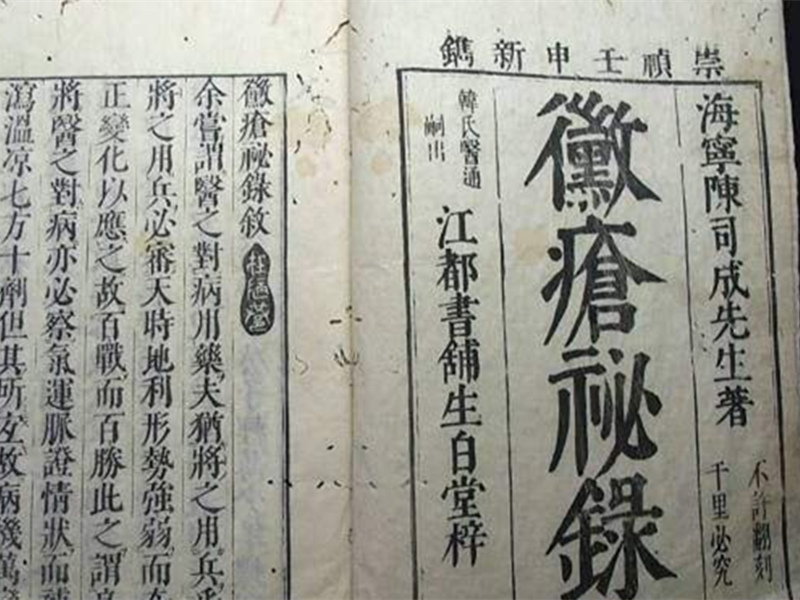 崇禎壬申新鐫
海寧陳司成先生著
不許翻刻
千里必究
黴瘡祕錄
韓氏醫通
嗣出
江都書舖生白堂梓
黴瘡祕錄敘
余嘗謂醫之對病用藥夫猶將之用兵
將之用兵必審天時地利形勢強弱而
正變化以應之故百戰而百勝此之謂
將醫之對病亦必察氣運脈證情狀而
瀉溫凉七方十劑但其所
故病機萬